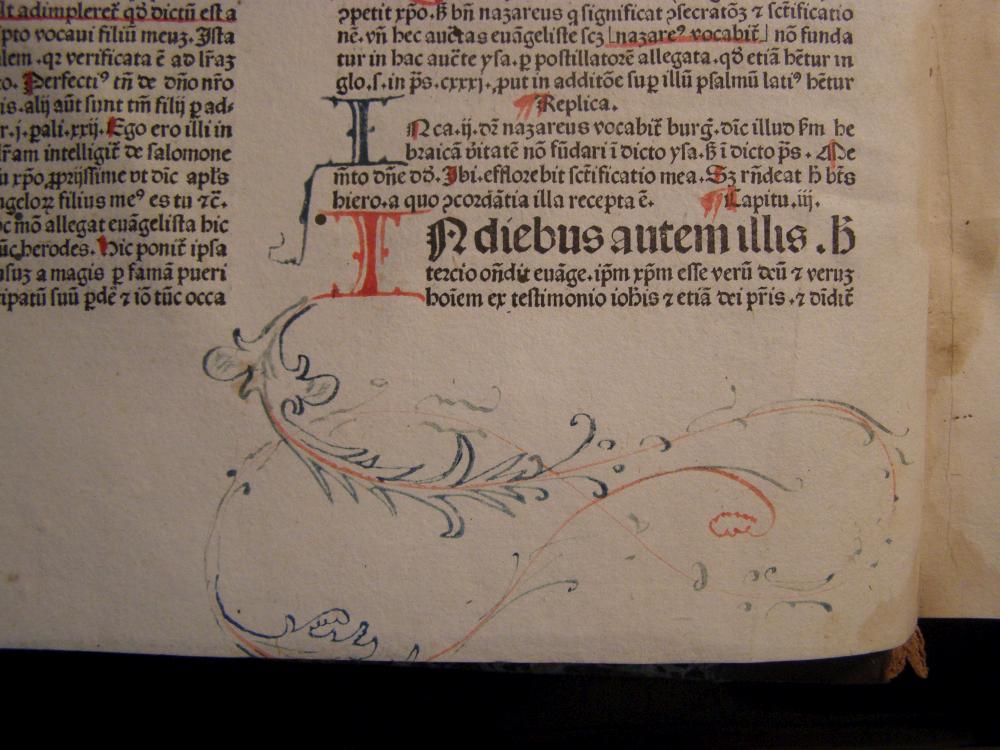 lt adimpleret̄ qđ dictū est a
ipto vocaui filiū meuꝫ. Ista
lem .qꝛ verificata ē ad lr̄aꝫ
to. Perfectiꝰ tn̄ de dn̄o nr̄o
is. alij aūt sunt tm̄ filij ꝑ ad-
r. j. pali. xxij. Ego ero illi in
lr̄am intelligit̄ de salomone
u xp̄o ꝓprijssime vt dic̄ apl̄s
ngeloꝝ filius meꝰ es tu ⁊c̄.
oc mō allegat euāgelista hic
ūc herodes. Hic ponit̄ ipsa
nsuꝫ a magis ꝑ famā pueri
ipatū suū ꝑdē ⁊ iō tūc occa
ꝯpetit xp̄o. ꝧ bn̄ nazareus q significat ꝯsecratōꝫ ⁊ sc̄tificatio
nē. vn̄ hec auc̄tas euāgeliste scꝫ nazareꝰ vocabit̄ nō funda
tur in hac auc̄te ysa. ꝑ postillatorē allegata. qđ etiā hētur in
glo. s. in ps̄. cxxxj. ꝓut in additōe suꝑ illū psalmū latiꝰ hētur
Replica.
IN ca. ij. dꝫ nazareus vocabit̄ burḡ. dic̄ illud ẜm he
braicā ṽitatē nō fūdari ī dicto ysa. ꝧ ī dicto ps̄. Me
m̄to dn̄e dd̄. Ibi. efflorebit sc̄tificatio mea. Sꝫ rn̄deat ħ bt̄s
hiero. a quo ꝯcordātia illa recepta ē. Capitu. iij.
IN diebus autem illis . ħ
tercio on̄dit euāge. ip̄m xp̄m esse verū deū ⁊ veruꝫ
hoīem ex testimonio ioħis ⁊ etiā dei pr̄is. ⁊ diuidit̄